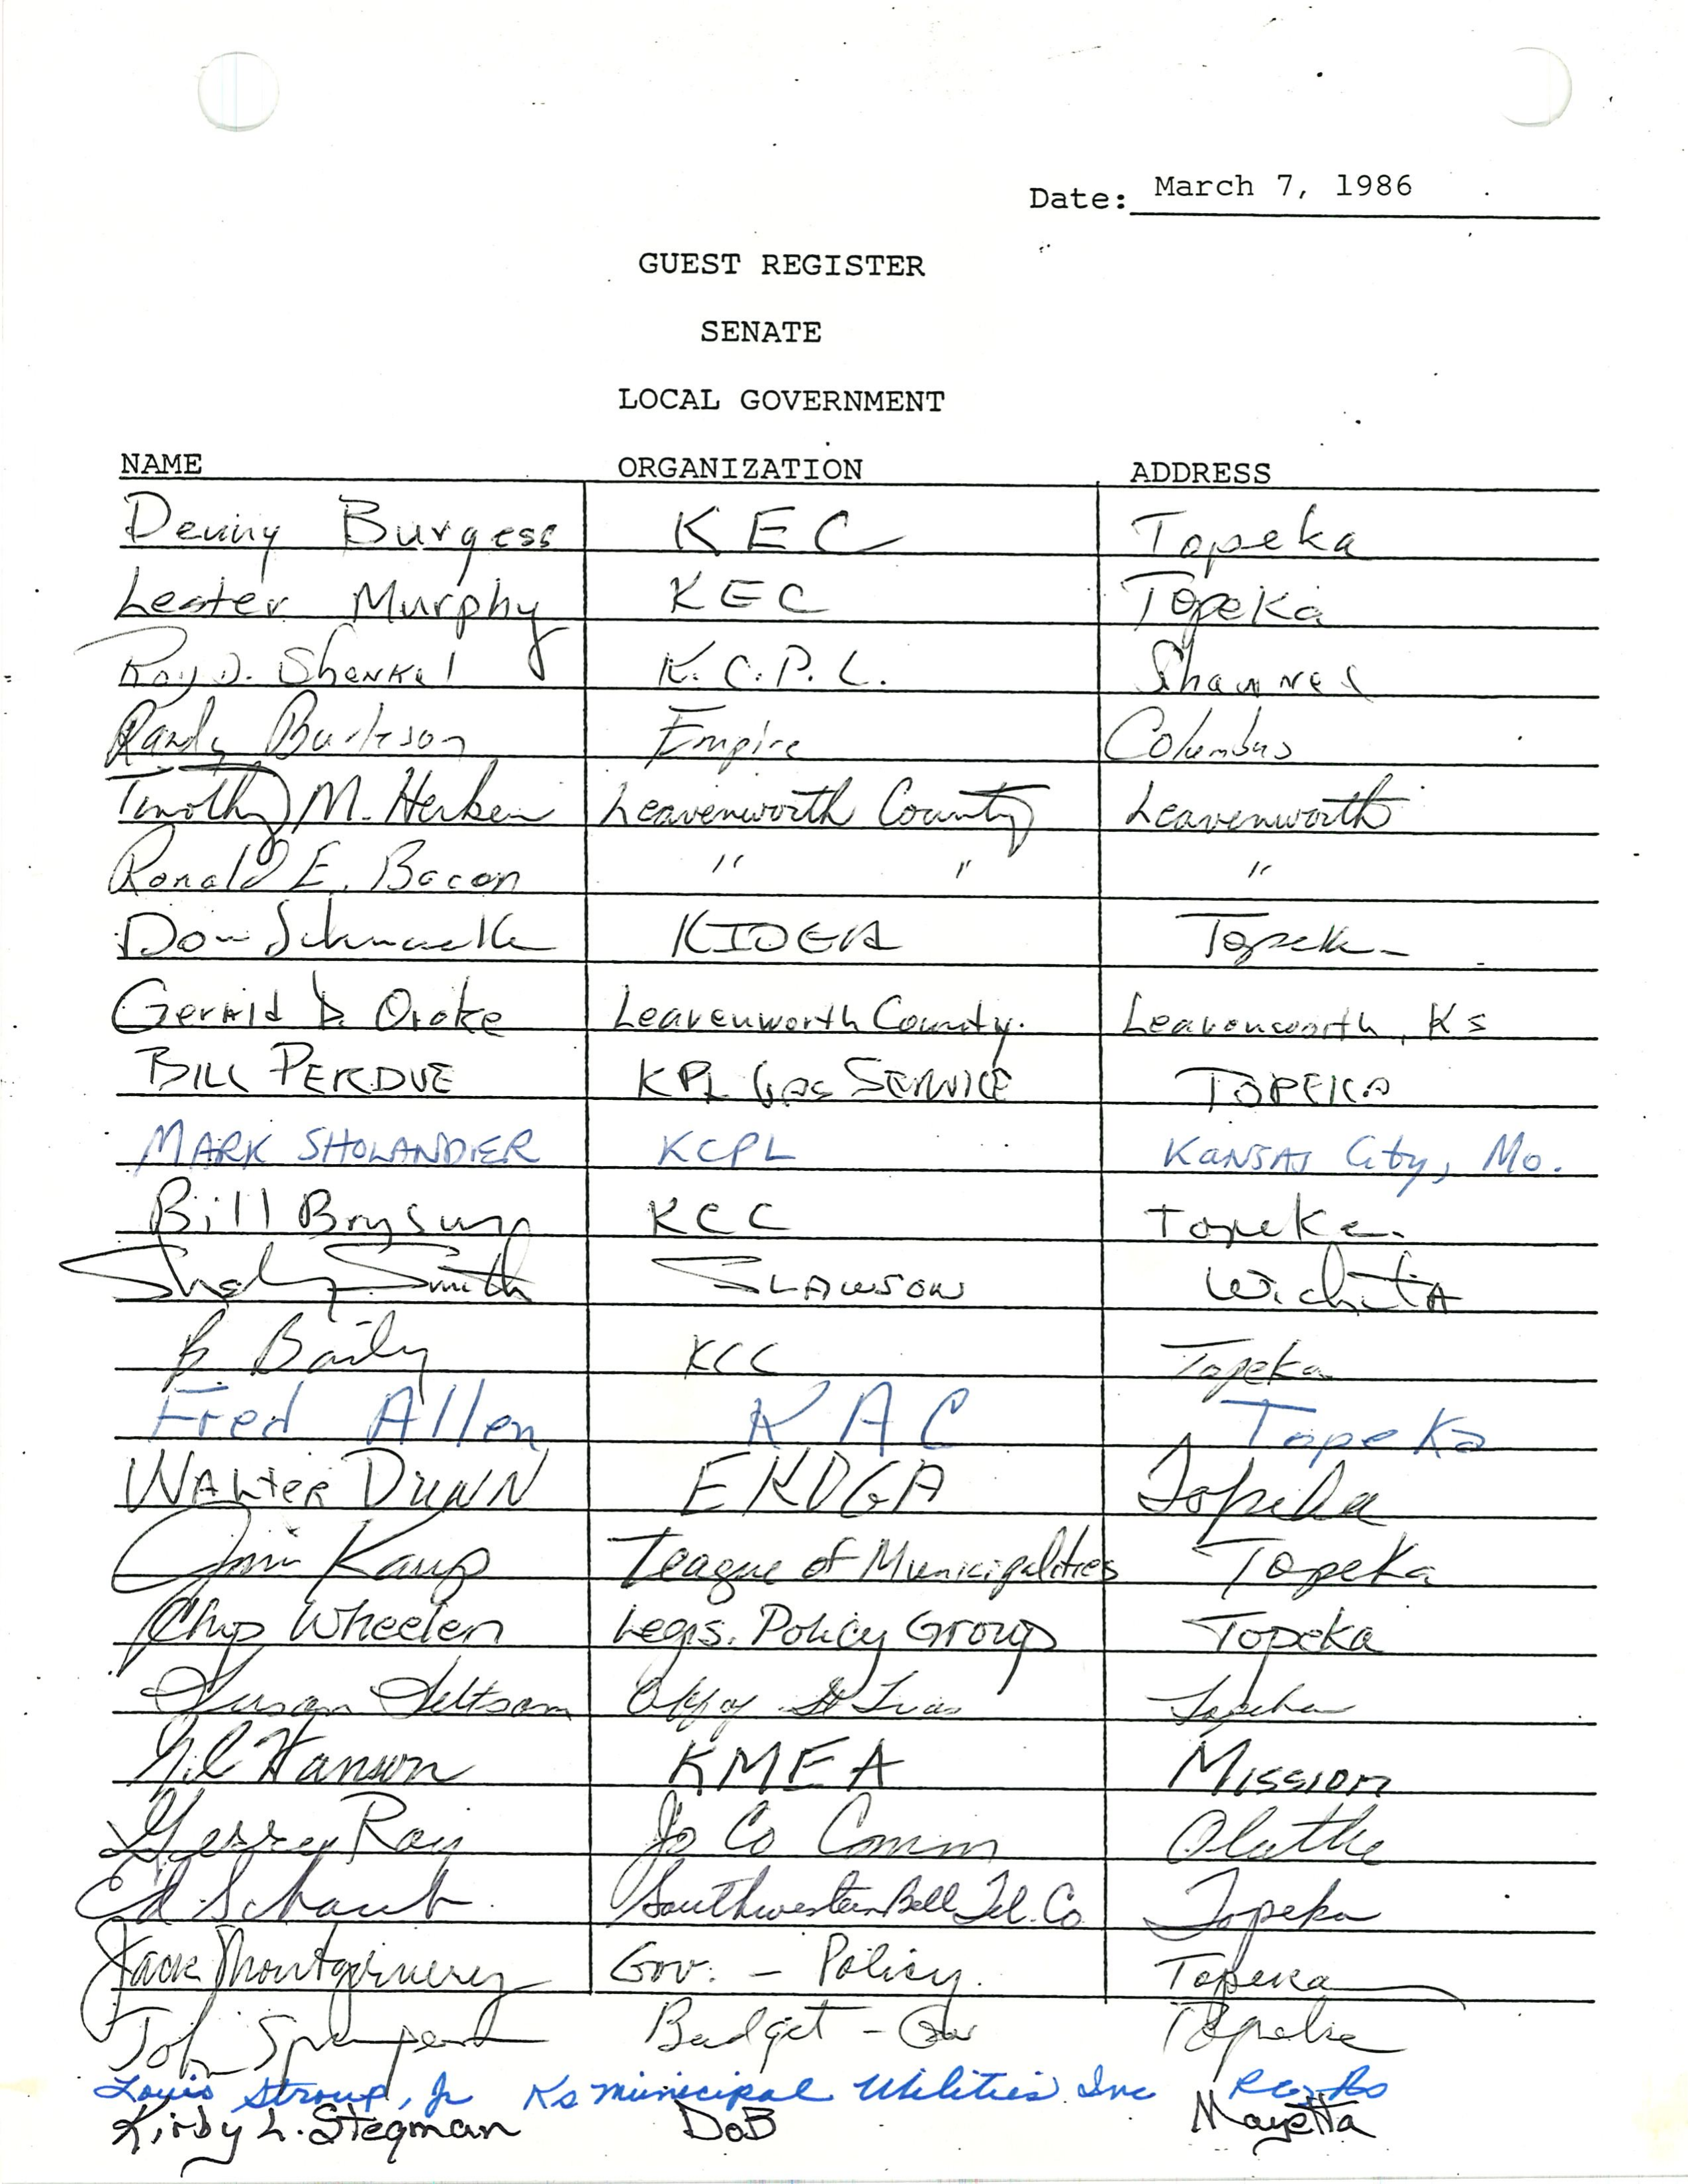 Date: March 7, 1986
GUEST REGISTER
SENATE
LOCAL GOVERNMENT
NAME ORGANIZATION ADDRESS
Denny Burgess KEC Topeka
Lester Murphy KEC Topeka
Roy D. Shenkel K.C.P.L. Shawnee
Randy Burleson Empire Columbus
Timothy M. Herken Leavenworth County Leavenworth
Ronald E. Bacon " " "
Don Schnacke KIOGA Topeka
Gerald D. Oroke Leavenworth County. Leavenworth, Ks
BILL PERDUE KPL Gas SERVICE TOPEKA
MARK SHOLANDER KCPL KANSAS City, Mo.
Bill Bryson KCC Topeka
Smith SLAWSON WichitA
B. KCC Topeka
Fred Allen KAC Topeka
WALTER DUNN EKOGA Topeka
Jim Kaup League of Municipalities Topeka
Chip Wheelen Legis. Policy Group Topeka
Susan Seltsam Topeka
Hanson KMEA Mission
Gerry Ray Jo Co Comm Olathe
Ed Schaub Southwestern Bell Tel. Co Topeka
Jack Montgomery Gov. - Policy. Topeka
John Budget - Topeka
Louis Stroup, Jr Ks municipal Utilities Inc
Kirby L. Stegman DoB Mayetta